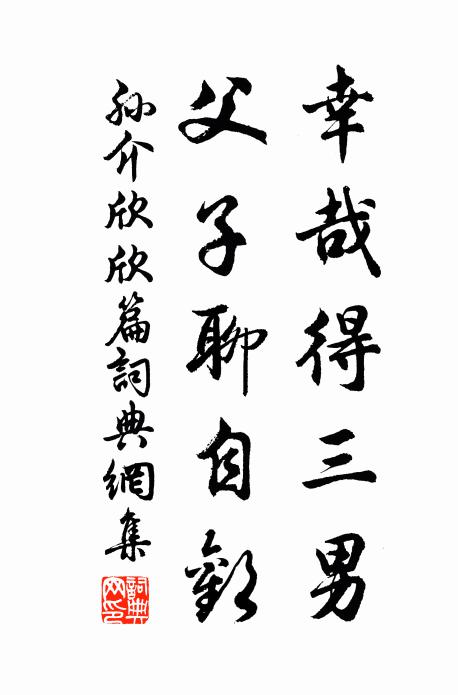 幸哉得三男
父子聊自歡
孫介欣欣篇詞典網集
詞典網印